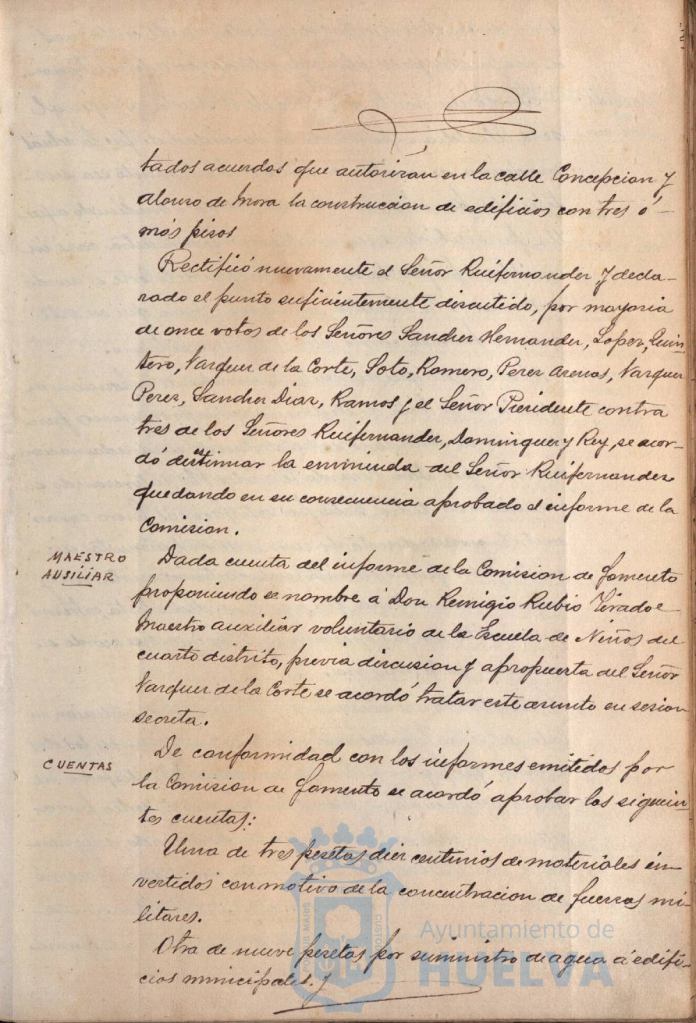 tados acuerdos que autorizan en la calle Concepcion y
Alonso de Mora la construccion de edificios con tres ó
más pisos
Rectificó nuevamente el Señor Ruifernandez y decla-
rado el punto suficientemente discutido, por mayoria
de once votos de los Señores Sanchez Hernandez, Lopez, Quin-
tero, Vazquez de la Corte, Soto, Romero, Perez Arenas, Vazquez
Perez, Sanchez Diaz, Ramos y el Señor Presidente contra
tres de los Señores Ruifernandez, Dominguez y Rey, se acor-
dó desestimar la enminda del Señor Ruifernandez
quedando en su consecuencia aprobado el informe de la
Comision.
MAESTRO
AUSILIAR
Dada cuenta del informe de la Comision de fomento
proponiendo se nombre á Don Remigio Rubio Tirado
Maestro auxiliar voluntario de la Escuela de Niños del
cuarto distrito, previa discusion y a propuesta del Señor
Vazquez de la Corte se acordó tratar este asunto en sesion
secreta.
CUENTAS
De conformidad con los informes emitidos por
la Comision de fomento se acordó aprobar las siguien-
tes cuentas:
Una de tres pesetas diez centimos de materiales in-
vertidos con motivo de la concentracion de fuerzas mi-
litares.
Otra de nueve pesetas por suministro de agua á edifi-
cios municipales. y
Ayuntamiento de
HUELVA